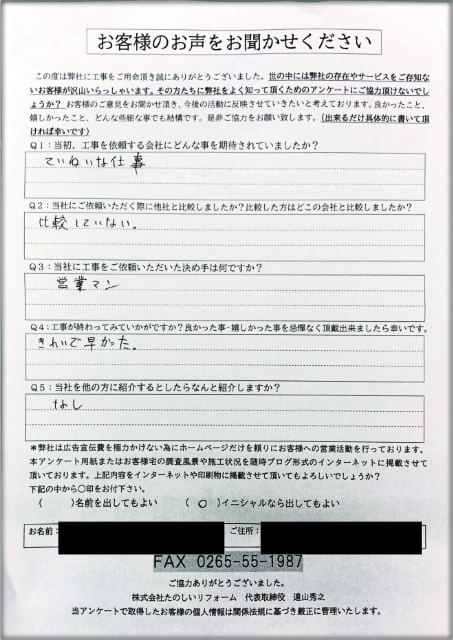 お客様のお声をお聞かせください
この度は弊社に工事をご用命頂き誠にありがとうございました。世の中には弊社の存在やサービスをご存知な
いお客様が沢山いらっしゃいます。その方たちに弊社をよく知って頂くためのアンケートにご協力頂けないでし
ょうか？ お客様のご意見をお聞かせ頂き、今後の活動に反映させていきたいと考えております。良かったこと、
嬉しかったこと、どんな些細な事でも結構です。是非ご協力をお願い致します。(出来るだけ具体的に書いて頂
ければ幸いです)
Q1：当初、工事を依頼する会社にどんな事を期待されていましたか？
ていねいな仕事
Q2：当社にご依頼いただく際に他社と比較しましたか？比較した方はどこの会社と比較しましたか？
比較していない。
Q3：当社に工事をご依頼いただいた決め手は何ですか？
営業マン
Q4：工事が終わってみていかがですか？良かった事・嬉しかった事を忌憚なく頂戴出来ましたら幸いです。
きれいで早かった。
Q5：当社を他の方に紹介するとしたらなんと紹介しますか？
なし
＊弊社は広告宣伝費を極力かけない為にホームページだけを頼りにお客様への営業活動を行っております。
本アンケート用紙またはお客様宅の調査風景や施工状況を随時ブログ形式のインターネットに掲載させて
頂いております。上記内容をインターネットや印刷物に掲載させて頂いてもよろしいでしょうか？
下記の中から〇印をお付下さい。
(　　)名前を出してもよい　　(〇)イニシャルなら出してもよい
お名前：　ご住所：
FAX 0265-55-1987
ご協力ありがとうございました。
株式会社たのしいリフォーム　代表取締役　遠山秀之
当アンケートで取得したお客様の個人情報は関係法規に基づき厳正に管理いたします。